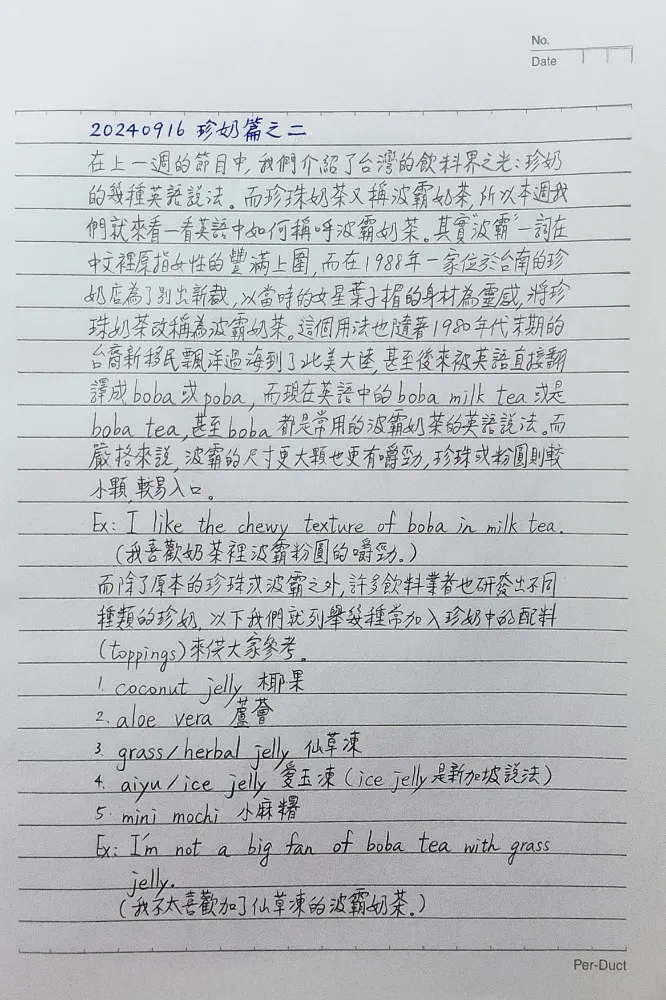 No.
Date
20240916 珍奶篇之二
在上一週的節目中,我們介紹了台灣的飲料界之光:珍奶
的幾種英語說法。而珍珠奶茶又稱波霸奶茶,所以本週我
們就來看一看英語中如何稱呼波霸奶茶。其實"波霸"一詞在
中文裡原指女性的豐滿上圍,而在1988年一家位於台南的珍
奶店為了別出新裁,以當時的女星葉子楣的身材為靈感,將珍
珠奶茶改稱為波霸奶茶。這個用法也隨著1980年代末期的
台裔新移民飄洋過海到了北美大陸,甚至後來被英語直接翻
譯成boba或poba,而現在英語中的boba milk tea或是
boba tea,甚至boba都是常用的波霸奶茶的英語說法。而
嚴格來說,波霸的尺寸更大顆也更有嚼勁,珍珠或粉圓則較
小顆,較易入口。
Ex: I like the chewy texture of boba in milk tea.
(我喜歡奶茶裡波霸粉圓的嚼勁。)
而除了原本的珍珠或波霸之外,許多飲料業者也研發出不同
種類的珍奶,以下我們就列舉幾種常加入珍奶中的配料
(toppings)來供大家參考。
1. coconut jelly 椰果
2. aloe vera 蘆薈
3. grass/herbal jelly 仙草凍
4. aiyu/ice jelly 愛玉凍(ice jelly是新加坡說法)
5. mini mochi 小麻糬
Ex: I'm not a big fan of boba tea with grass
jelly.
(我不太喜歡加了仙草凍的波霸奶茶。)
Per-Duct